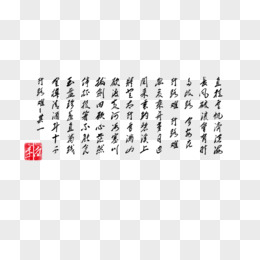 行路难·其一
金樽清酒斗十千
玉盘珍羞直万钱
停杯投箸不能食
拔剑四顾心茫然
欲渡黄河冰塞川
将登太行雪满山
闲来垂钓碧溪上
忽复乘舟梦日边
行路难 行路难
多歧路 今安在
长风破浪会有时
直挂云帆济沧海